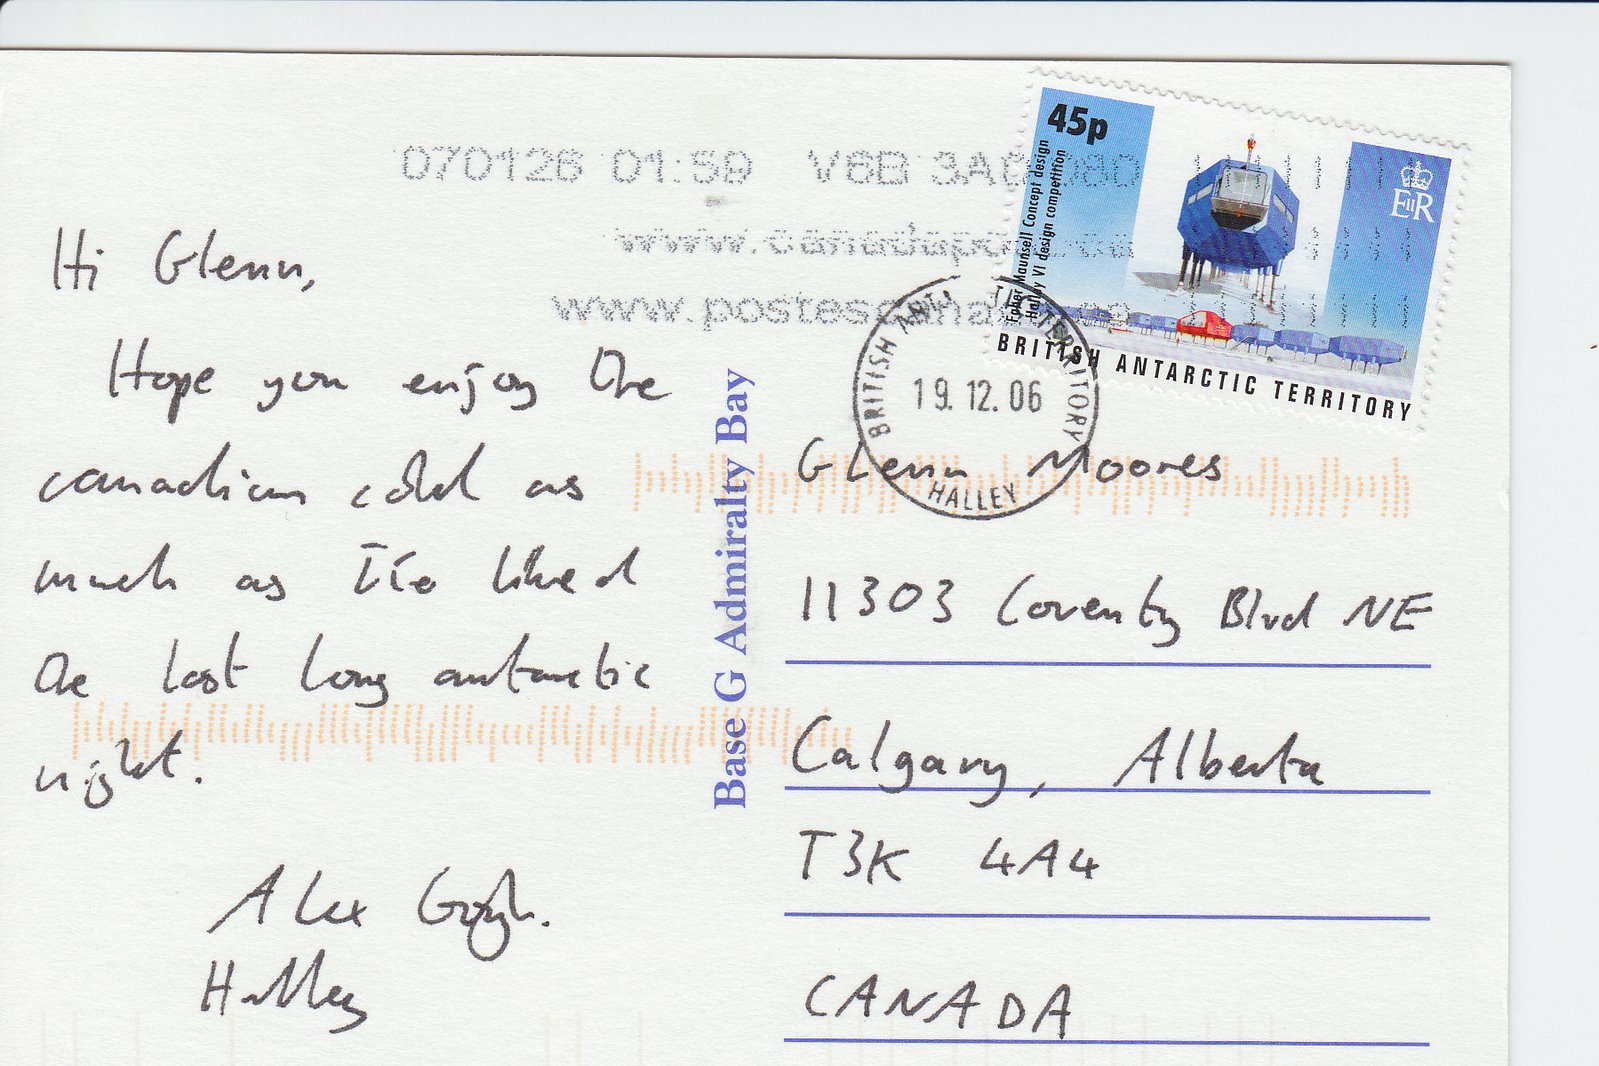 070126 01:59 V6B 3A0080
www.canadapost.ca
www.postescanada.ca
45p
Faber Maunsell Concept design
Halley VI design competition
EIIR
BRITISH ANTARCTIC TERRITORY
BRITISH ANT. TERRITORY
19.12.06
HALLEY
Hi Glenn,
Hope you enjoy the
canadian cold as
much as I've liked
the last long antarctic
night.
Alex
Halley
Base G Admiralty Bay
Glenn Moores
11303 Coventry Blvd NE
Calgary, Alberta
T3K 4A4
CANADA